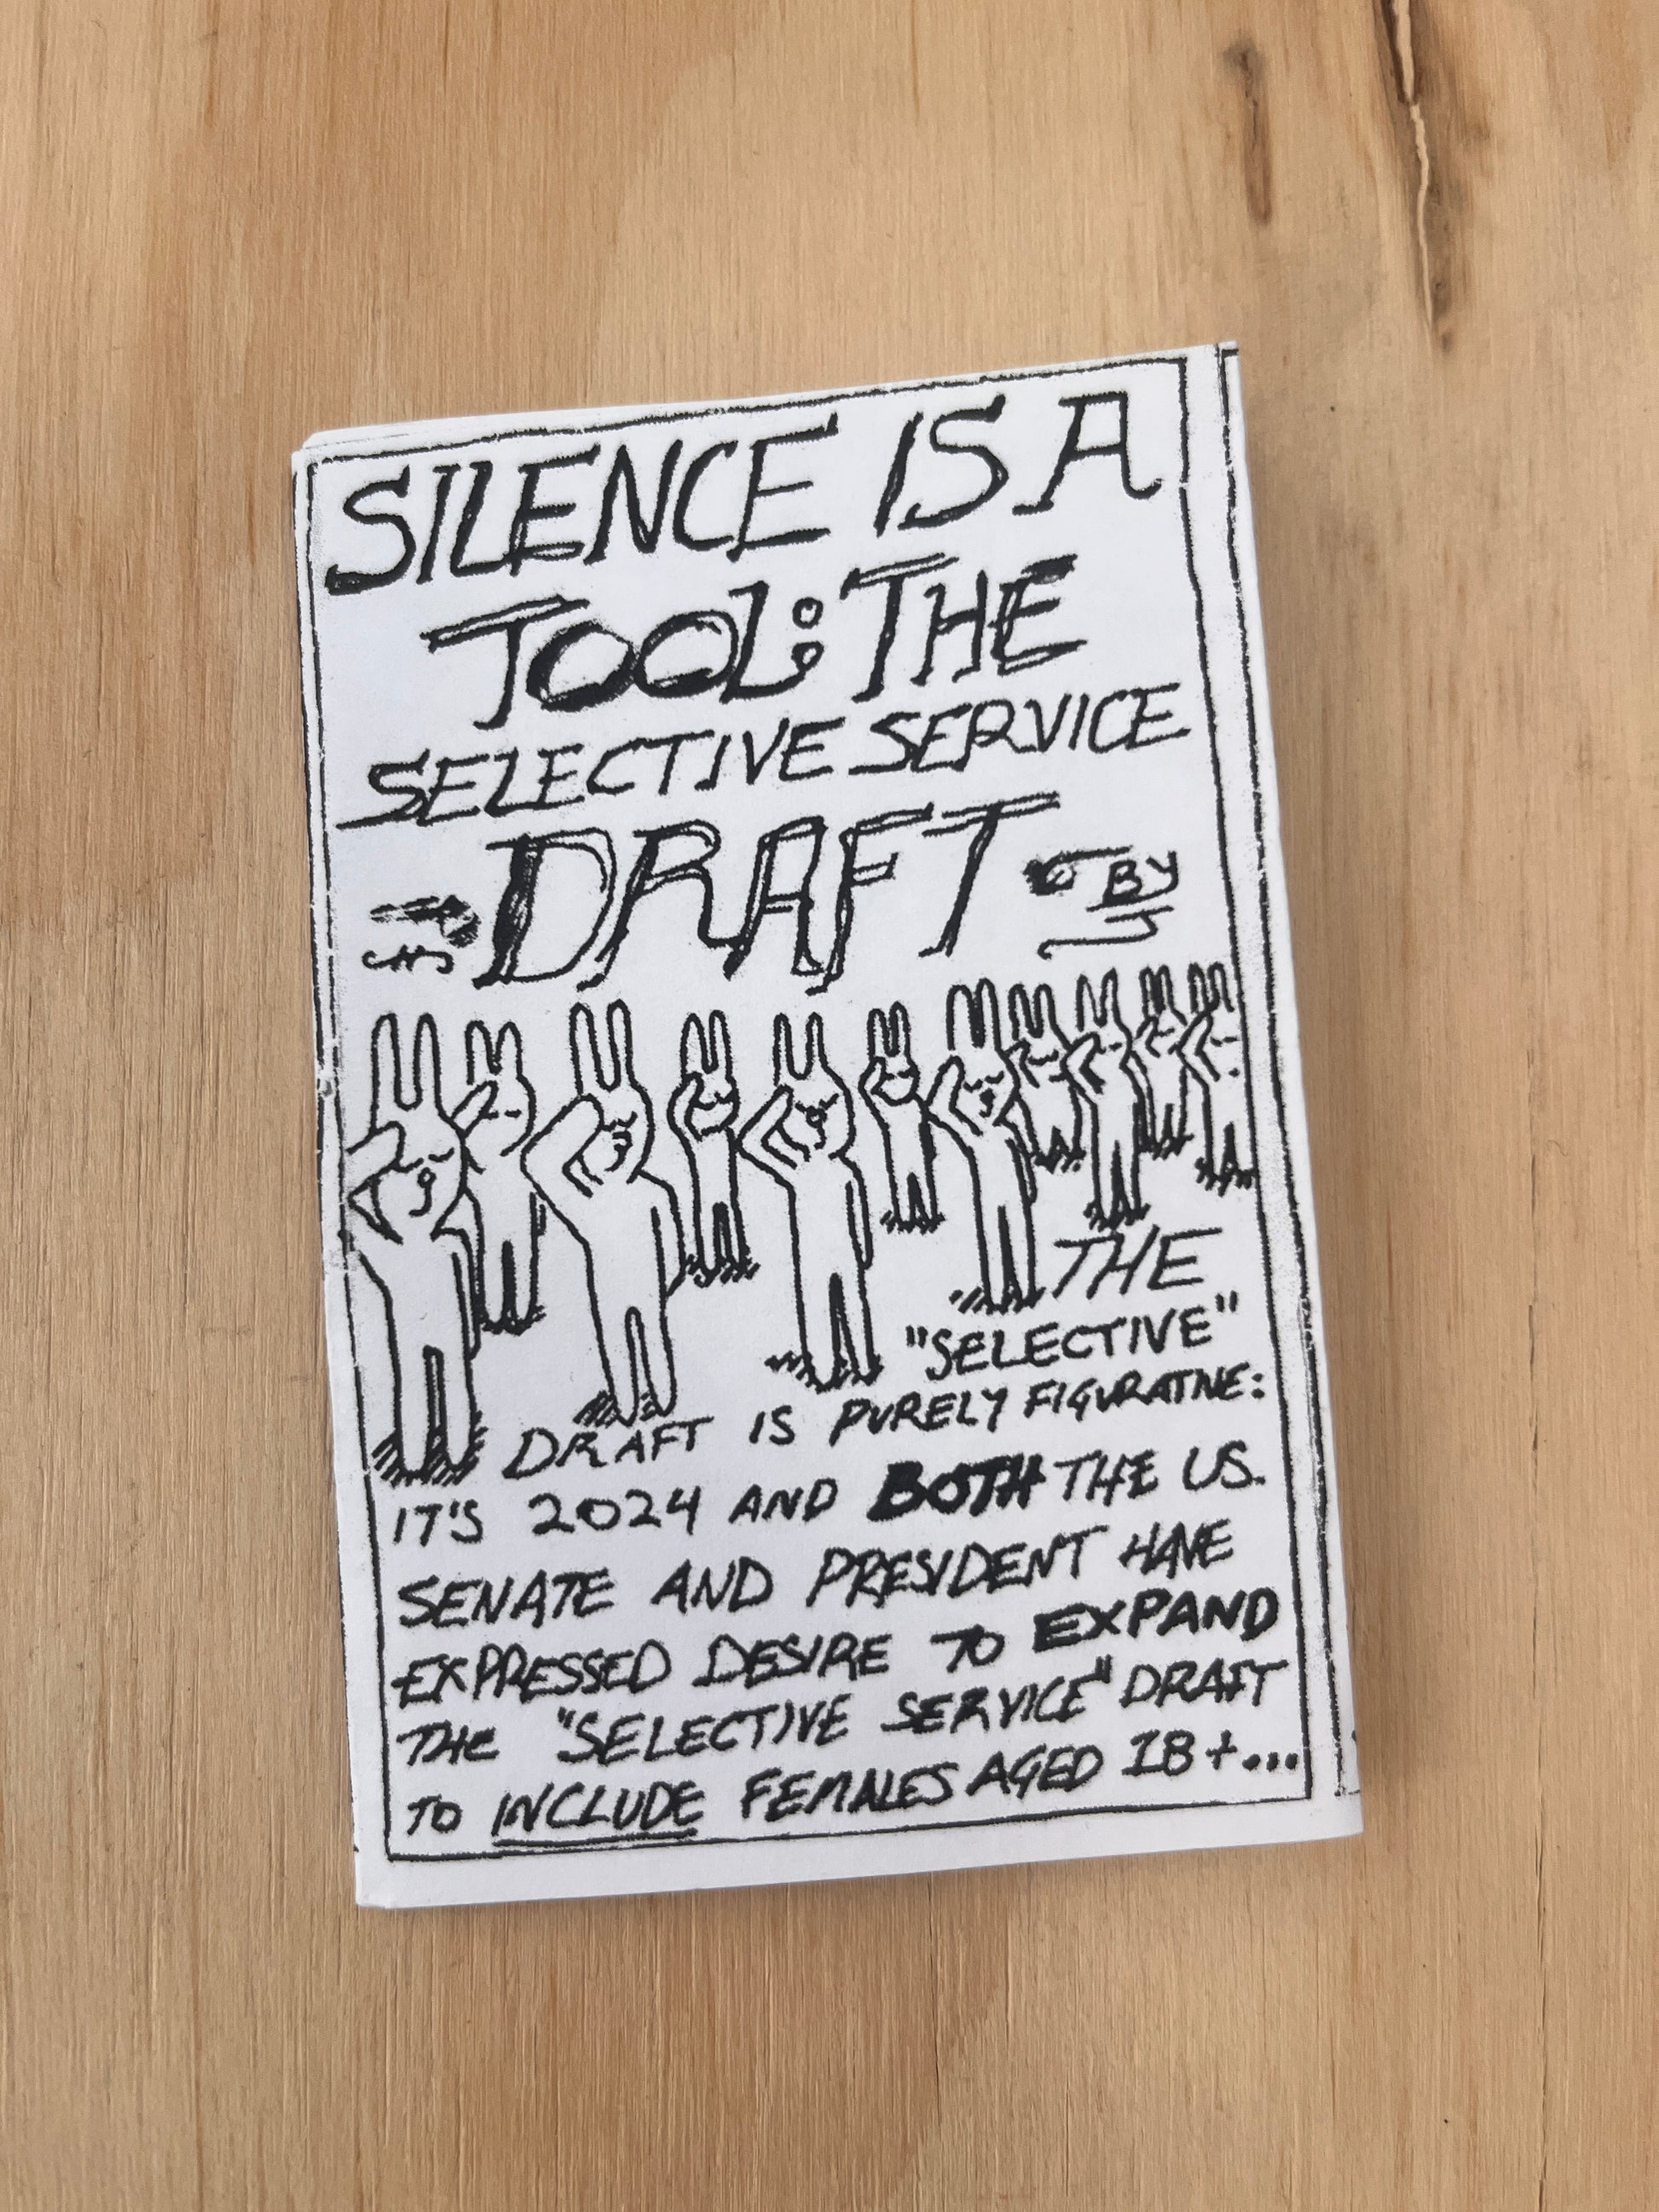 SILENCE IS A
TOOL: THE
SELECTIVE SERVICE
DRAFT BY
J
THE
"SELECTIVE"
DRAFT IS PURELY FIGURATIVE:
IT'S 2024 AND BOTH THE US.
SENATE AND PRESIDENT HAVE
EXPRESSED DESIRE TO EXPAND
THE "SELECTIVE SERVICE" DRAFT
TO INCLUDE FEMALES AGED 18+...